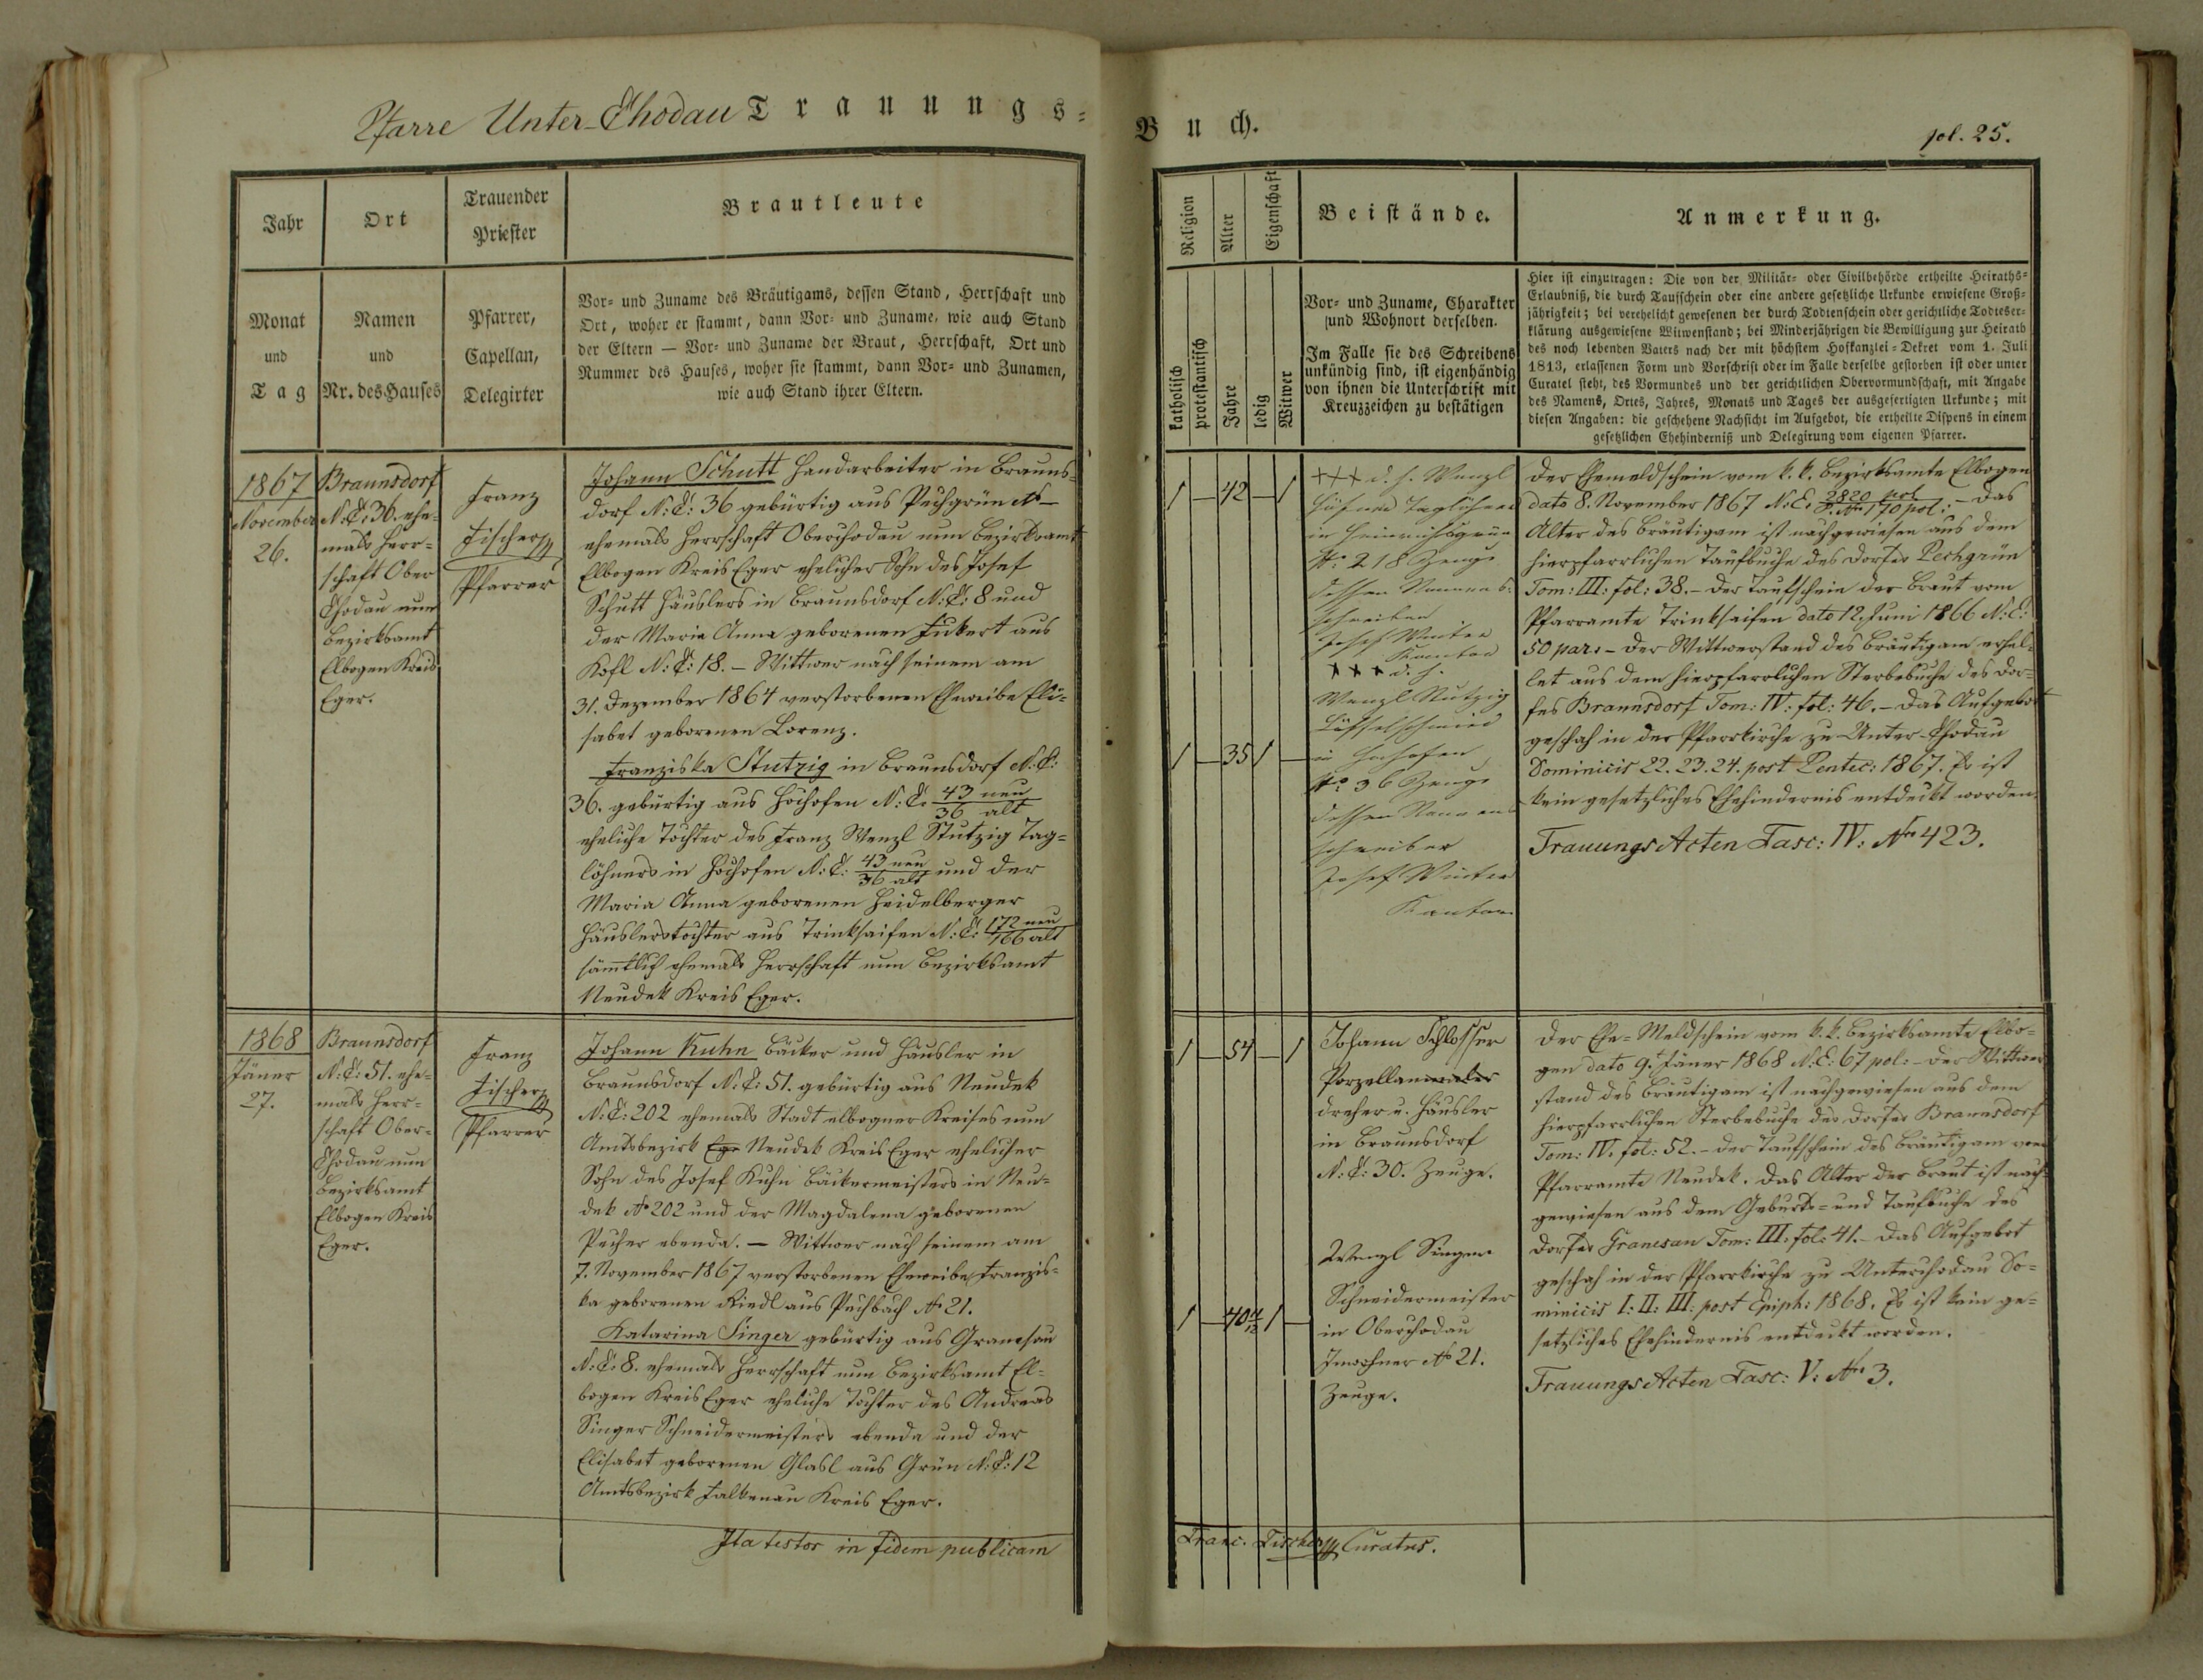 Pfarre Unter-Chodau Trauungs-
Buch.
fol. 25.
Jahr
Ort
Trauender
Priester
Brautleute
Monat
und
Tag
Namen
und
Nr. des Hauses
Pfarrer,
Capellan,
Delegirter
Vor- und Zuname des Bräutigams, dessen Stand, Herrschaft und
Ort, woher er stammt, dann Vor- und Zuname, wie auch Stand
der Eltern — Vor- und Zuname der Braut, Herrschaft, Ort und
Nummer des Hauses, woher sie stammt, dann Vor- und Zunamen,
wie auch Stand ihrer Eltern.
1867
November
26.
Braunsdorf
N:C: 36. ehe-
mals Herr-
schaft Ober
Chodau nun
Bezirksamt
Elbogen Kreis
Eger.
Franz
Fischer
Pfarrer
Johann Schutt Handarbeiter in Brauns-
dorf N:C: 36 gebürtig aus Pechgrün N° —
ehemals Herrschaft Oberchodau nun Bezirksamt
Elbogen Kreis Eger ehelicher Sohn des Josef
Schutt Häuslers in Braunsdorf N:C: 8 und
der Maria Anna geborenen Fukert aus
Kösl N:C: 18. – Wittwer nach seinem am
31. Dezember 1864 verstorbenen Eheweibe Eli-
sabet geborenen Lorenz.
Franziska Stutzig in Braunsdorf N:C:
36. gebürtig aus Hochofen N:C: 43 neu
36 alt
eheliche Tochter des Franz Wenzl Stutzig Tag-
löhners in Hochofen N:C: 43 neu und der
36 alt
Maria Anna geborenen Heidelberger
Häuslerstochter aus Trinksaifen N:C: 172 neu
166 alt
sämtlich ehemals Herrschaft nun Bezirksamt
Neudek Kreis Eger.
1868
Jäner
27.
Braunsdorf
N:C: 51. ehe-
mals Herr-
schaft Ober-
Chodau nun
Bezirksamt
Elbogen Kreis
Eger.
Franz
Fischer
Pfarrer
Johann Kuhn Bäcker und Häusler in
Braunsdorf N:C: 51. gebürtig aus Neudek
N:C: 202 ehemals Stadt elbogner Kreises nun
Amtsbezirk Ege Neudek Kreis Eger ehelicher
Sohn des Josef Kuhn Bäckermeisters in Neu-
dek N° 202 und der Magdalena geborenen
Pecher ebenda. — Wittwer nach seinem am
7. November 1867 verstorbenen Eheweibe Franzis-
ka geborenen Riedl aus Pechbach N° 21.
Katarina Singer gebürtig aus Granesau
N:C: 8. ehemals Herrschaft nun Bezirksamt El-
bogen Kreis Eger eheliche Tochter des Andreas
Singer Schneidermeisters ebenda und der
Elisabet geborenen Glasl aus Grün N:C: 12
Amtsbezirk Falkenau Kreis Eger.
Ita testor in fidem publicam
Religion
Alter
Eigenschaft
Beistände.
Anmerkung.
katholisch
protestantisch
Jahre
ledig
Witwer
Vor- und Zuname, Charakter
und Wohnort derselben.
Im Falle sie des Schreibens
unkündig sind, ist eigenhändig
von ihnen die Unterschrift mit
Kreuzzeichen zu bestätigen
Hier ist einzutragen: Die von der Militär- oder Civilbehörde ertheilte Heiraths-
Erlaubniß, die durch Taufschein oder eine andere gesetzliche Urkunde erwiesene Groß-
jährigkeit; bei verehelicht gewesenen der durch Todtenschein oder gerichtliche Todteser-
klärung ausgewiesene Witwenstand; bei Minderjährigen die Bewilligung zur Heirath
des noch lebenden Vaters nach der mit höchstem Hofkanzlei-Dekret vom 1. Juli
1813, erlassenen Form und Vorschrift oder im Falle derselbe gestorben ist oder unter
Curatel steht, des Vormundes und der gerichtlichen Obervormundschaft, mit Angabe
des Namens, Ortes, Jahres, Monats und Tages der ausgefertigten Urkunde; mit
diesen Angaben: die geschehene Nachsicht im Aufgebot, die ertheilte Dispens in einem
gesetzlichen Ehehinderniß und Delegirung vom eigenen Pfarrer.
1 — 42 — 1
+++ d. h. Wenzl
Taglöhner
in Heinrichsgrün
N° 218 Zeuge
dessen Namens-
schreiber
Josef Winter
Kantor
+++ d. h.
Wenzl Stutzig
Löffelschmied
in Hochofen
N° 36 Zeuge
dessen Namens
schreiber
Josef Winter
Kantor
1 — 35 1 —
Der Ehemeldschein vom k. k. Bezirksamte Elbogen
dato 8. November 1867 N:E. 2820 pol
P. Nro 170 pol: – Das
Alter des Bräutigam ist nachgewiesen aus dem
hierpfarrlichen Taufbuche des Dorfes Pechgrün
Tom: III: fol: 38. – Der Taufschein der Braut vom
Pfarramte Trinksaifen dato 12. Juni 1866 N:E:
50 par. – Der Wittwerstand des Bräutigam erhel-
let aus dem hierpfarrlichen Sterbebuche des Dor-
fes Braunsdorf Tom: IV: fol: 46. – Das Aufgebot
geschah in der Pfarrkirche zu Unter-Chodau
Dominicis 22. 23. 24. post Pentec: 1867. Es ist
kein gesetzliches Ehehindernis entdeckt worden.
Trauungs Acten Fasc: IV: Nro 423.
1 — 54 — 1
Johann Schlosser
Porzellanmaler
dreher u. Häusler
in Braunsdorf
N:C: 30. Zeuge.
Wenzl Singer
Schneidermeister
in Oberchodau
Inwohner N° 21.
Zeuge.
1 — 40 4/12 1 —
Der Ehe-Meldschein vom k. k. Bezirksamte Elbo-
gen dato 9. Jäner 1868 N:E: 67 pol: – Der Wittwer
stand des Bräutigam ist nachgewiesen aus dem
hierpfarrlichen Sterbebuche des Dorfes Braunsdorf
Tom: IV. fol: 52. – Der Taufschein des Bräutigam vom
Pfarramte Neudek. Das Alter der Braut ist nach-
gewiesen aus dem Geburts- und Taufbuche des
Dorfes Granesau Tom: III: fol: 41. – Das Aufgebot
geschah in der Pfarrkirche zu Unterchodau Do-
minicis I: II: III: post Epiph: 1868. Es ist kein ge-
setzliches Ehehindernis entdeckt worden.
Trauungs Acten Fasc: V: Nro 3.
Franc. Fischer Curatus.